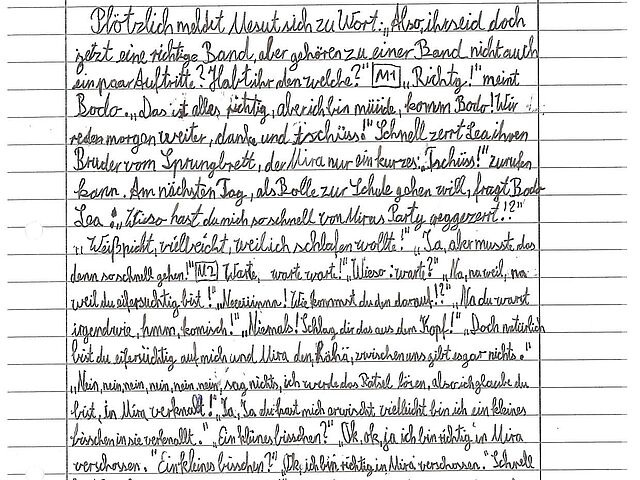 Plötzlich meldet Mesut sich zu Wort: „Also, ihr seid doch
jetzt eine richtige Band, aber gehören zu einer Band nicht auch
ein paar Auftritte? Habt ihr denn welche?" M1 „Richtig!" meint
Bodo. „Das ist alles richtig, aber ich bin müüde, komm Bodo! Wir
reden morgen weiter, danke und tschüss!" Schnell zerrt Lea ihren
Bruder vom Sprungbrett, der Mira nur ein kurzes: „Tschüss!" zurufen
kann. Am nächsten Tag, als Bolle zur Schule gehen will, fragt Bodo
Lea: „Wieso hast du mich so schnell von Miras Party weggezerrt!?"
„Weißnicht, vielleicht, weil ich schlafen wollte!" „Ja, aber musste das
denn so schnell gehen!" M2 Warte, warte wart!" „Wieso: warte?" „Na, na weil, na
weil du eifersüchtig bist!" „Neeeiiinnn! Wie kommst du den darauf!?" „Na du warst
irgendwie, hmm, komisch!" „Niemals! Schlag dir das aus dem Kopf!" „Doch natürlich
bist du eifersüchtig auf mich und Mira den, hähä, zwischen uns gibt es gar nichts."
„Nein, nein, nein, nein, nein, nein, sag nichts, ich werde das Rätsel lösen, also ich glaube du
bist, in Mira verknallt!" „Ja, Ja du hast mich erwischt vielleicht bin ich ein kleines
bisschen in sie verknallt." „Ein kleines bisschen?" „Ok, ok, ja ich bin richtig in Mira
verschossen." „Ein kleines bisschen?" „Ok, ich bin richtig in Mira verschossen." Schnell